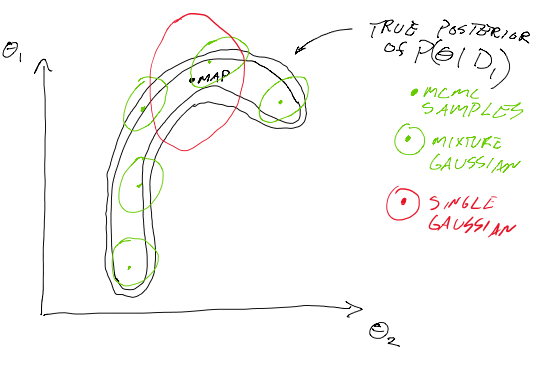 θ₁
TRUE POSTERIOR
of P(θ|D₁)
MAP
MCMC
SAMPLES
MIXTURE
GAUSSIAN
SINGLE
GAUSSIAN
θ₂